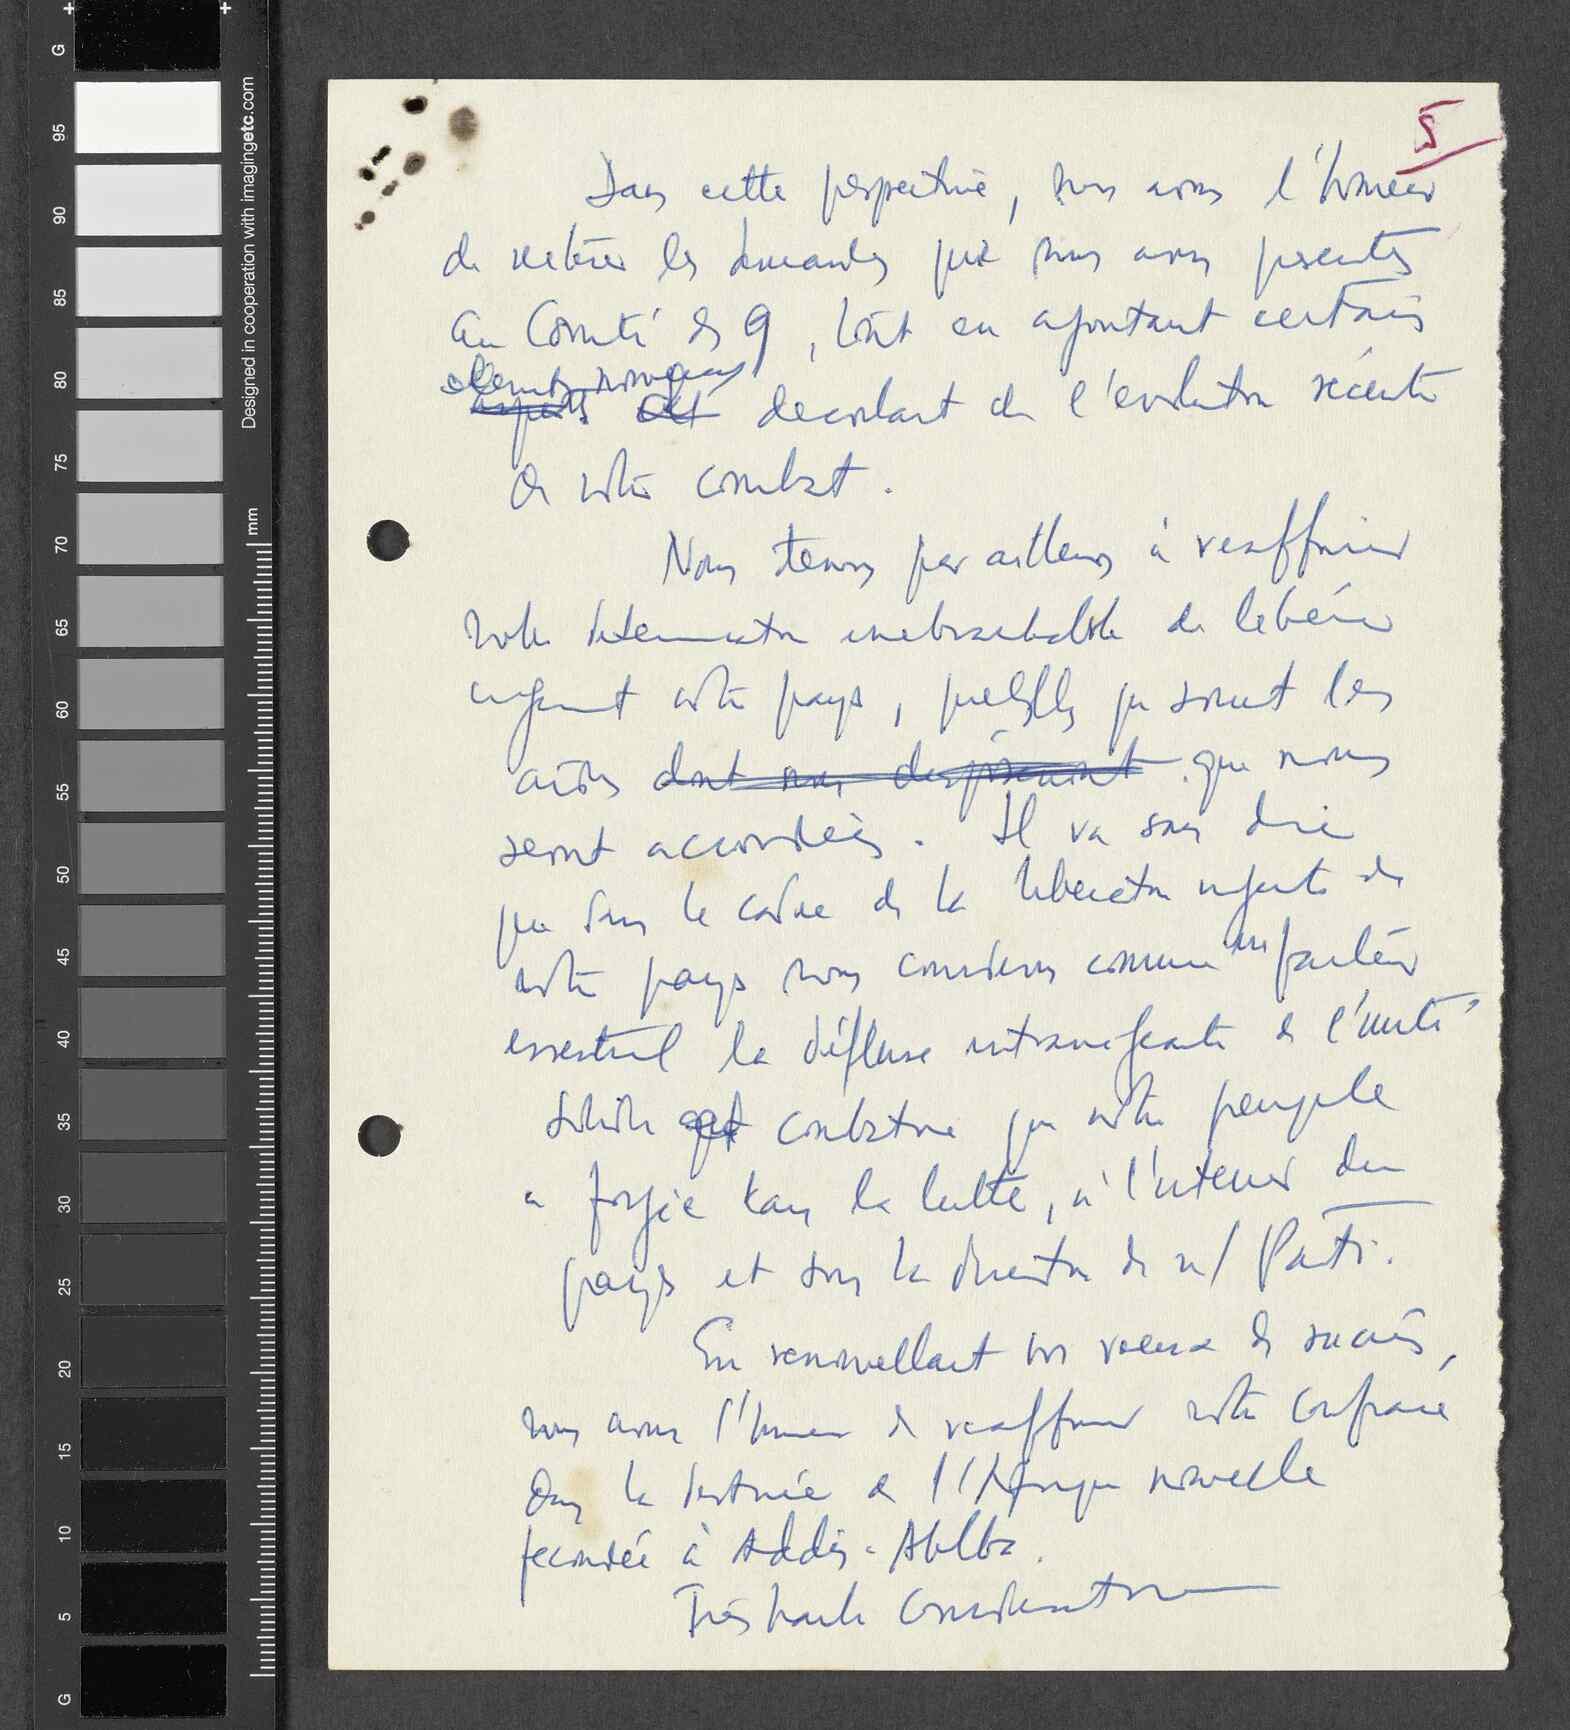 5
Dans cette perspective, nous avons l'honneur
de réitérer les demandes que nous avons présentés
au Comité des 9, tout en ajoutant certains
éléments nouveaux
aspects decoulant de l'evolution récente
de notre combat.
Nous tenons par ailleurs à reaffirmer
notre determination inebranlable de libérer
urgemment notre pays, quelles que soient les
aides dont nous disposerons que nous
seront accordées. Il va sans dire
que dans le cadre de la liberation urgente de
notre pays nous considerons comme un facteur
essentiel la défense intransigeante de l'unité
solide et combative que notre peuple
a forgée dans la lutte, à l'interieur du
pays et sous la direction de n/ Parti.
En renouvellant nos voeux de succès,
nous avons l'honneur de reaffirmer notre confiance
dans la destinée de l'Afrique nouvelle
fecondée à Addis-Abeba.
Très haute Consideration
G
95
90
85
80
75
70
65
60
55
50
45
40
35
30
25
20
15
10
5
G
mm
Designed in cooperation with imagingetc.com